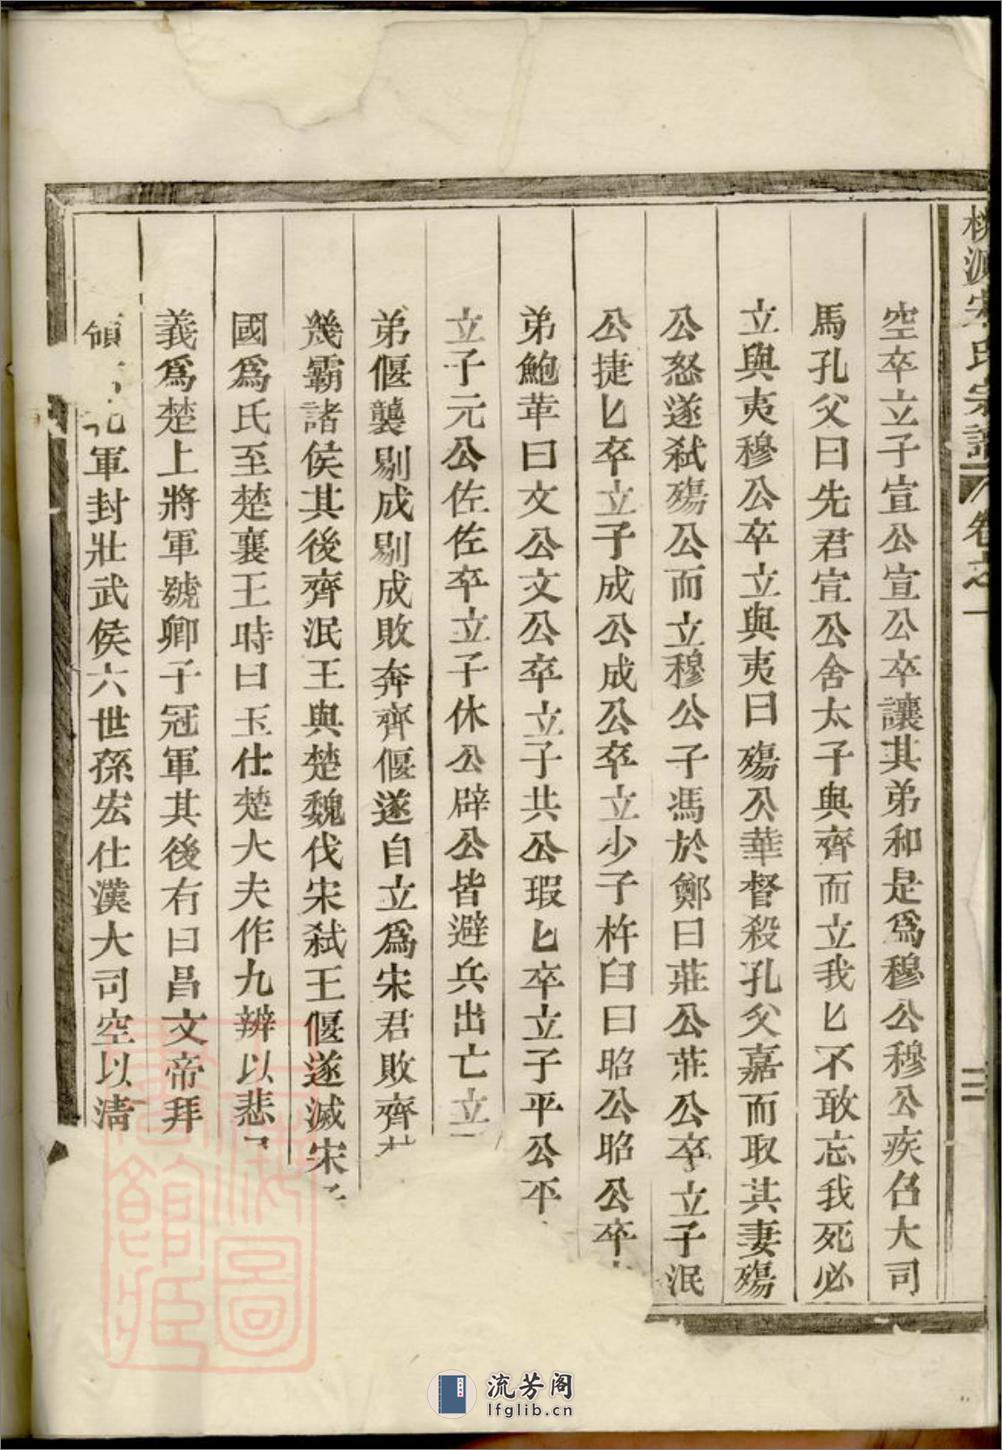 桃源宋氏宗譜 卷之一 三
空卒立子宣公宣公卒讓其弟和是爲穆公穆公疾召大司
馬孔父曰先君宣公舍太子與齊而立我匕不敢忘我死必
立與夷穆公卒立與夷曰殤公華督殺孔父嘉而取其妻殤
公怒遂弒殤公而立穆公子馮於鄭曰莊公莊公卒立子泯
公捷匕卒立子成公成公卒立少子杵臼曰昭公昭公卒
弟鮑革曰文公文公卒立子共公瑕匕卒立子平公平
立子元公佐佐卒立子休公辟公皆避兵出亡立
弟偃襲剔成剔成敗奔齊偃遂自立爲宋君敗齊
幾霸諸侯其後齊泯王與楚魏伐宋弒王偃遂滅宋
國爲氏至楚襄王時曰玉仕楚大夫作九辨以悲
義爲楚上將軍號卿子冠軍其後有曰昌文帝拜
領軍封壯武侯六世孫宏仕漢大司空以清
圖書館藏
流芳阁
lfglib.cn